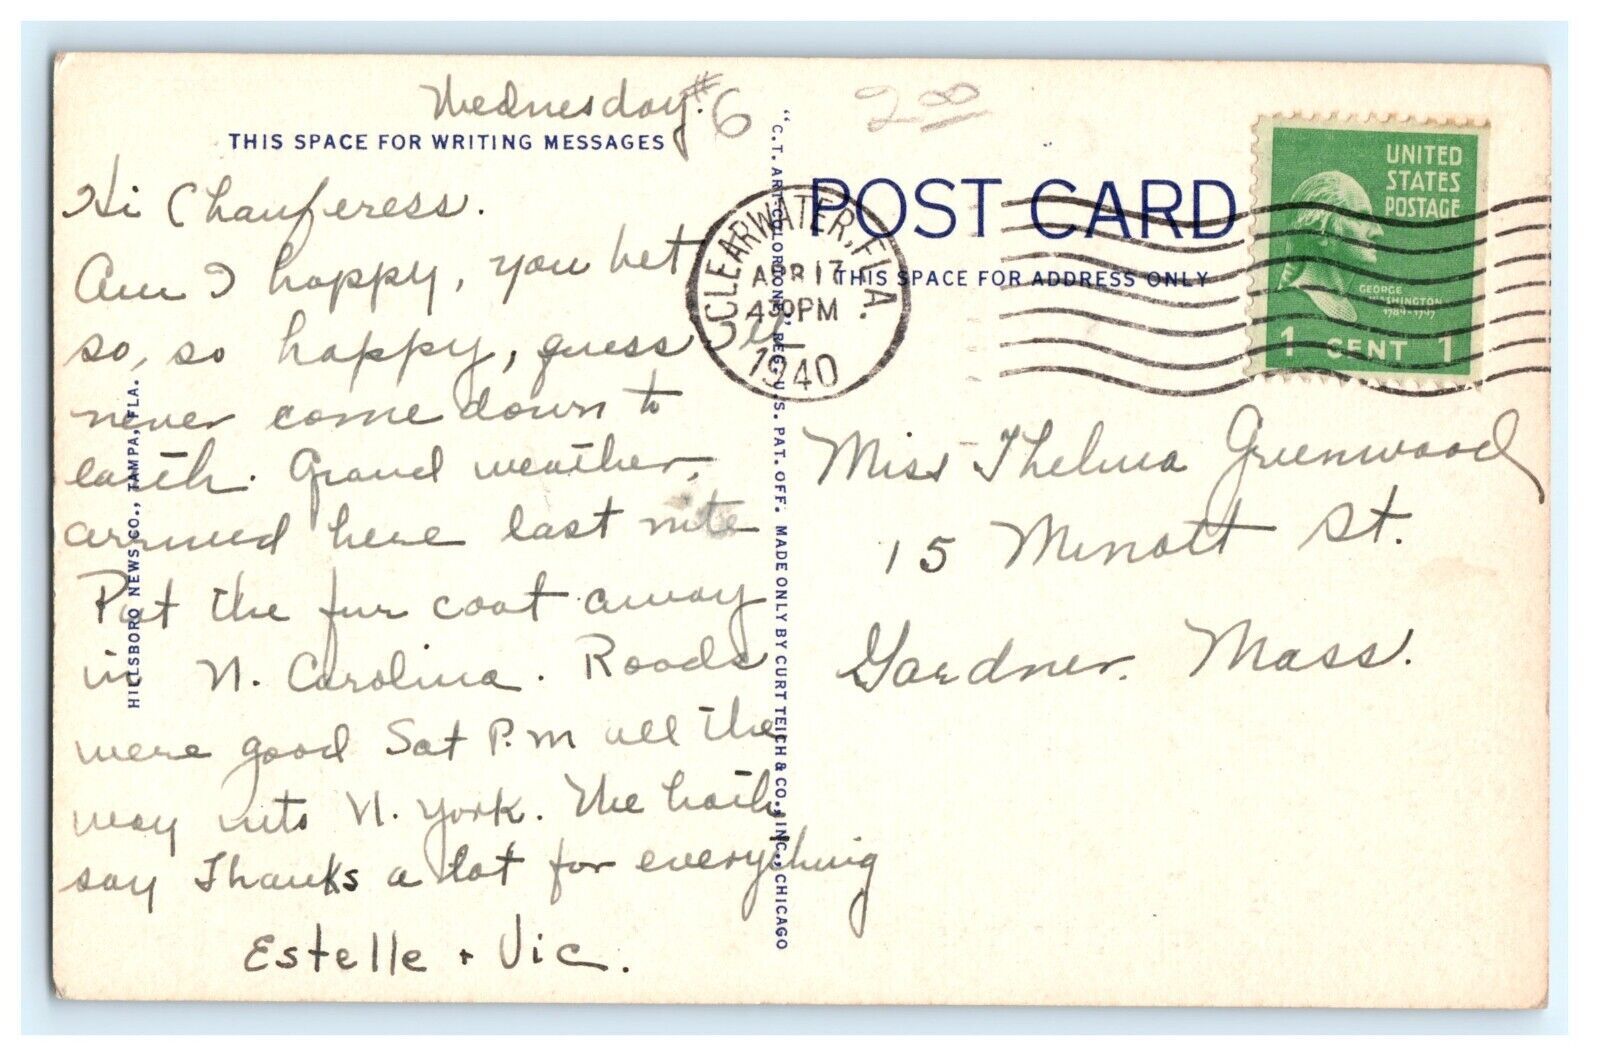 Wednesday. #6
THIS SPACE FOR WRITING MESSAGES
Hi Chauferess.
Am I happy, you bet
so, so happy, guess I'll
never come down to
earth. Grand weather,
arrived here last nite
Put the fur coat away
in N. Carolina. Roads
were good Sat P.M all the
way into N. York. We both
say Thanks a lot for everything
Estelle + Vic.
HILLSBORO NEWS CO., TAMPA, FLA.
"C.T. ART-COLORTONE" REG. U.S. PAT. OFF. MADE ONLY BY CURT TEICH & CO., INC., CHICAGO
2 00
POST CARD
THIS SPACE FOR ADDRESS ONLY
CLEARWATER, FLA.
APR 17
4 30 PM
1940
UNITED
STATES
POSTAGE
GEORGE
WASHINGTON
1789-1797
1 CENT 1
Miss Thelma Greenwood
15 Minott St.
Gardner. Mass.